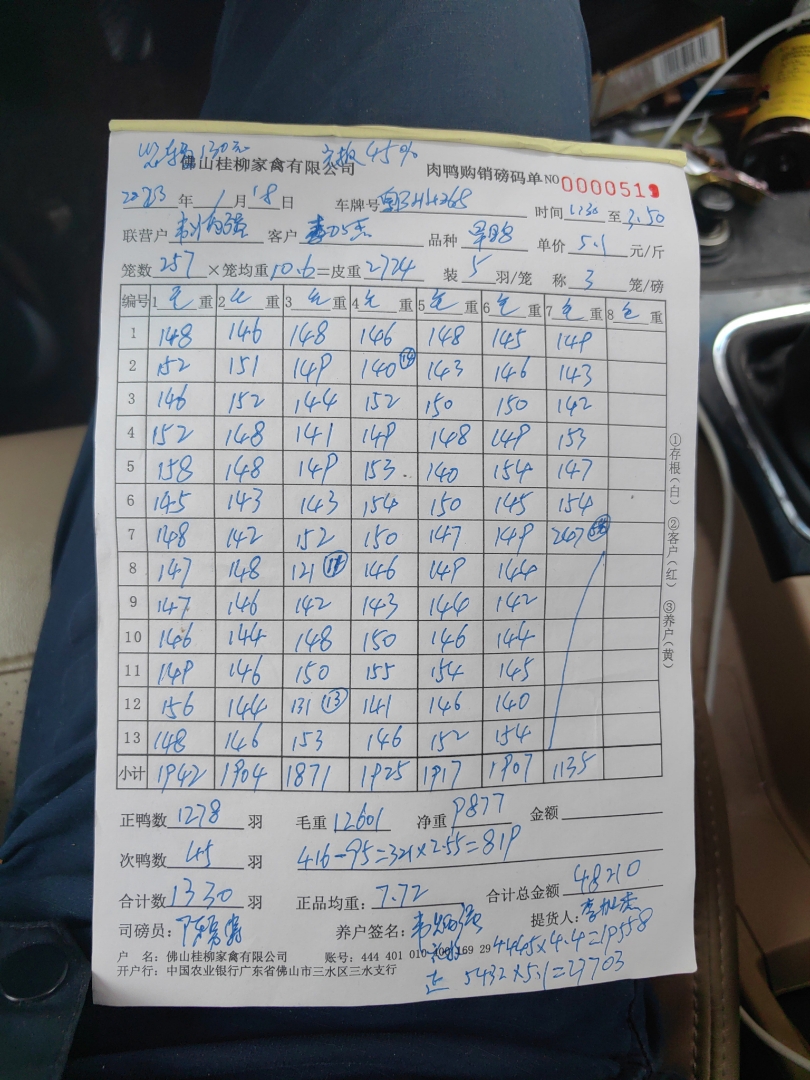 130元 45%
佛山桂柳家禽有限公司 肉鸭购销磅码单 NO 0000519
2023年1月18日 车牌号 时间 至 3.50
联营户 客户 品种 单价 5.1 元/斤
笼数 257 ×笼均重 10.6 =皮重 2724 装 5 羽/笼 称 3 笼/磅
编号 1 毛 重 2 毛 重 3 毛 重 4 毛 重 5 毛 重 6 毛 重 7 毛 重 8 毛 重
1 148 146 148 146 148 145 149
2 152 151 149 140 ⑭ 143 146 143
3 146 152 144 152 150 150 142
4 152 148 141 149 148 149 153
5 158 148 149 153 140 154 147
6 145 143 143 154 150 145 154
7 148 142 152 150 147 149 247
8 147 148 121 146 149 144
9 147 146 142 143 144 142
10 146 144 148 150 146 144
11 149 146 150 155 154 145
12 156 144 131 ⑬ 141 146 140
13 148 146 153 146 152 154
小计 1942 1904 1871 1925 1917 1907 1135
正鸭数 1278 羽 毛重 12601 净重 9877 金额
次鸭数 45 羽 416-95=321×2.55=819
合计数 1330 羽 正品均重: 7.72 合计总金额 48210
司磅员: 养户签名: 提货人:
户 名: 佛山桂柳家禽有限公司 账号: 444 401 010 400 169 29 4445×4.4=19558
开户行: 中国农业银行广东省佛山市三水区三水支行 正 5432×5.1=27703
①存根(白) ②客户(红) ③养户(黄)